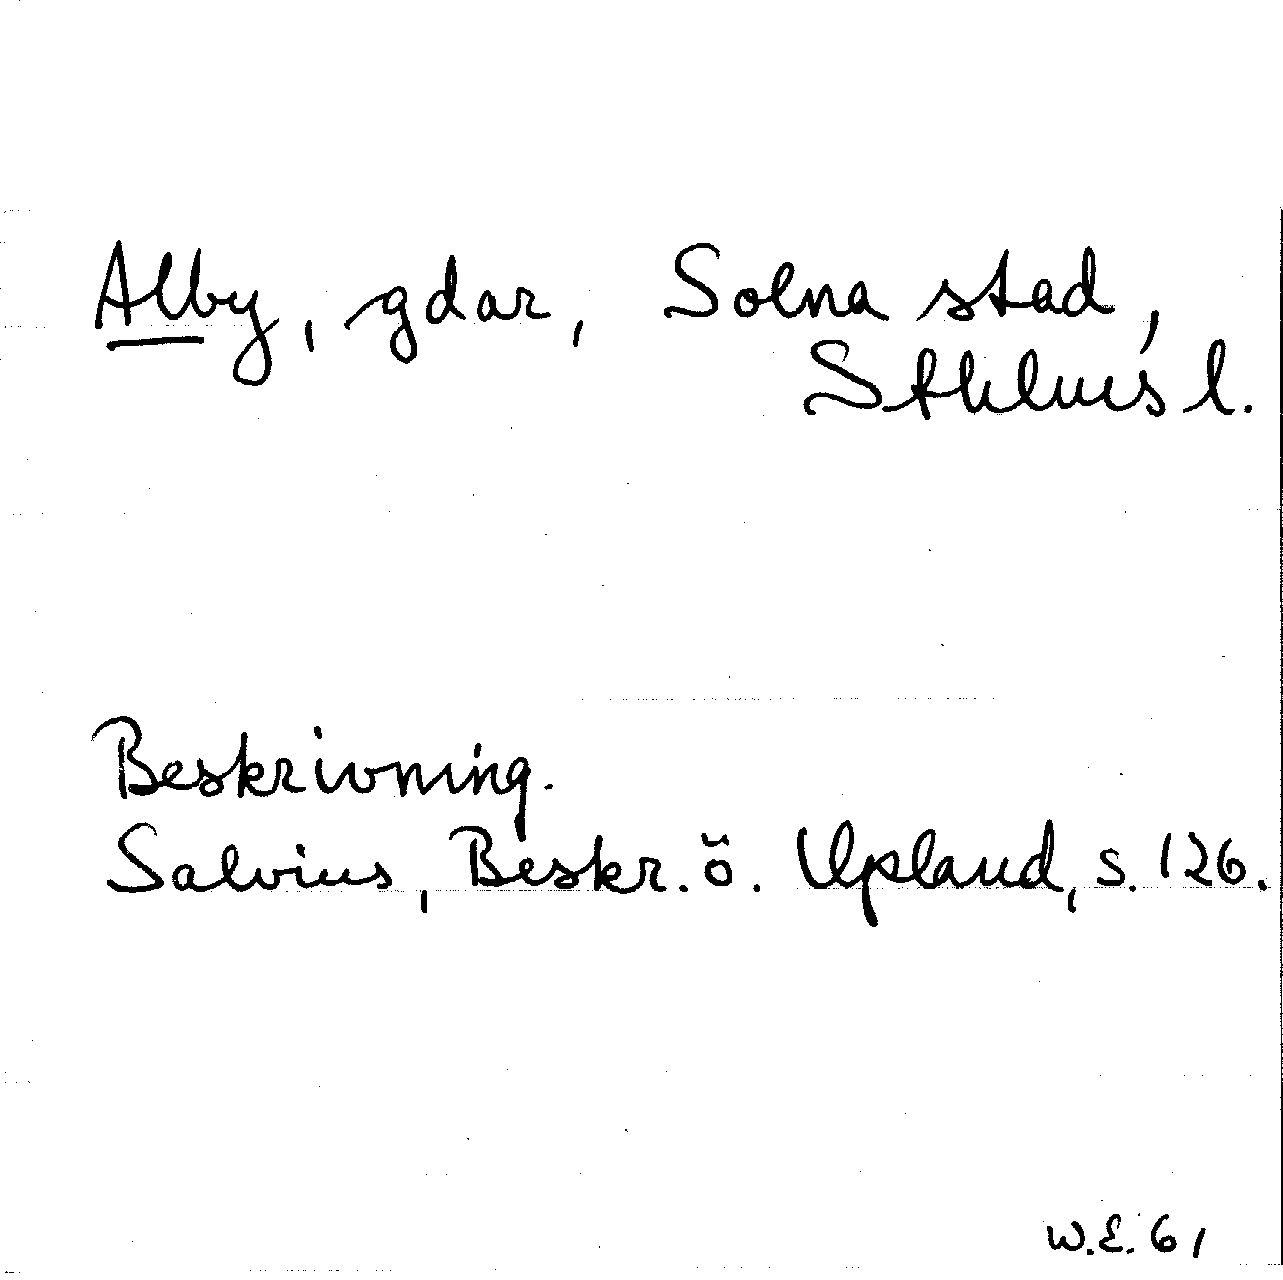 Alby, gdar, Solna stad,
Sthlms l.
Beskrivning.
Salvius, Beskr. ö. Upland, s. 126.
W.E. 61